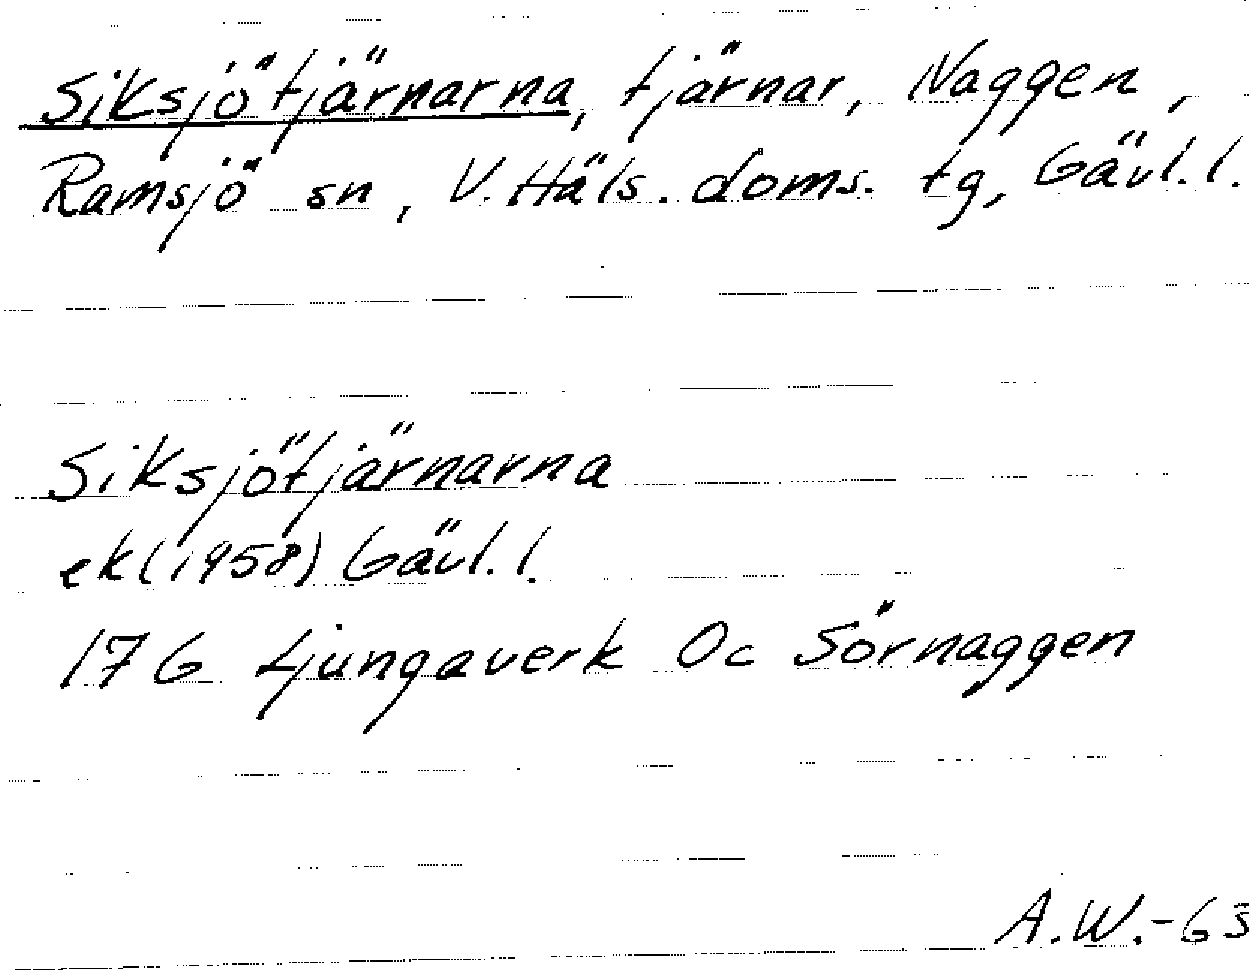 Siksjötjärnarna, tjärnar, Naggen,
Ramsjö sn, V. Häls. doms. tg, Gävl. l.
Siksjötjärnarna
ek (1958) Gävl. l.
17 G Ljungaverk Oc Sörnaggen
A.W.-63